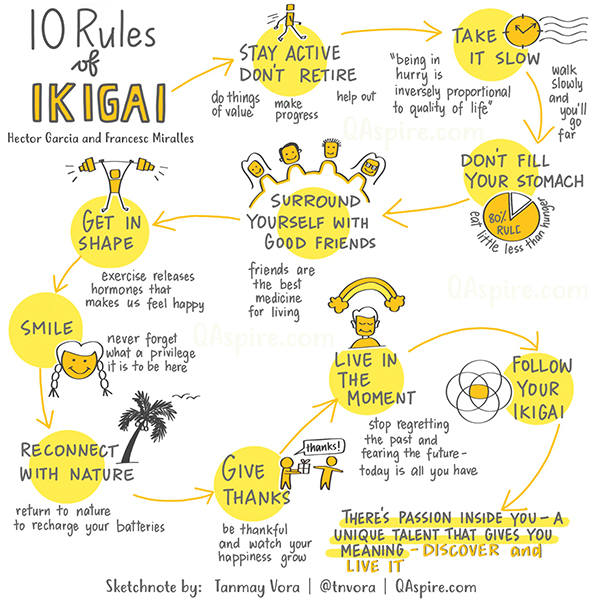 10 Rules
of
IKIGAI
Hector Garcia and Francesc Miralles
STAY ACTIVE
DON'T RETIRE
do things
of value
make
progress
help out
TAKE
IT SLOW
"being in
hurry is
inversely proportional
to quality of life"
walk
slowly
and
you'll
go
far
QAspire.com
DON'T FILL
YOUR STOMACH
80%
RULE
eat little less than hunger
SURROUND
YOURSELF WITH
GOOD FRIENDS
friends are
the best
medicine
for living
GET IN
SHAPE
exercise releases
hormones that
makes us feel happy
QAspire.com
SMILE
never forget
what a privilege
it is to be here
QAspire.com
RECONNECT
WITH NATURE
return to nature
to recharge your batteries
GIVE
THANKS
thanks!
be thankful
and watch your
happiness grow
LIVE IN
THE
MOMENT
stop regretting
the past and
fearing the future-
today is all you have
FOLLOW
YOUR
IKIGAI
THERE'S PASSION INSIDE YOU - A
UNIQUE TALENT THAT GIVES YOU
MEANING - DISCOVER and
LIVE IT
Sketchnote by: Tanmay Vora | @tnvora | QAspire.com